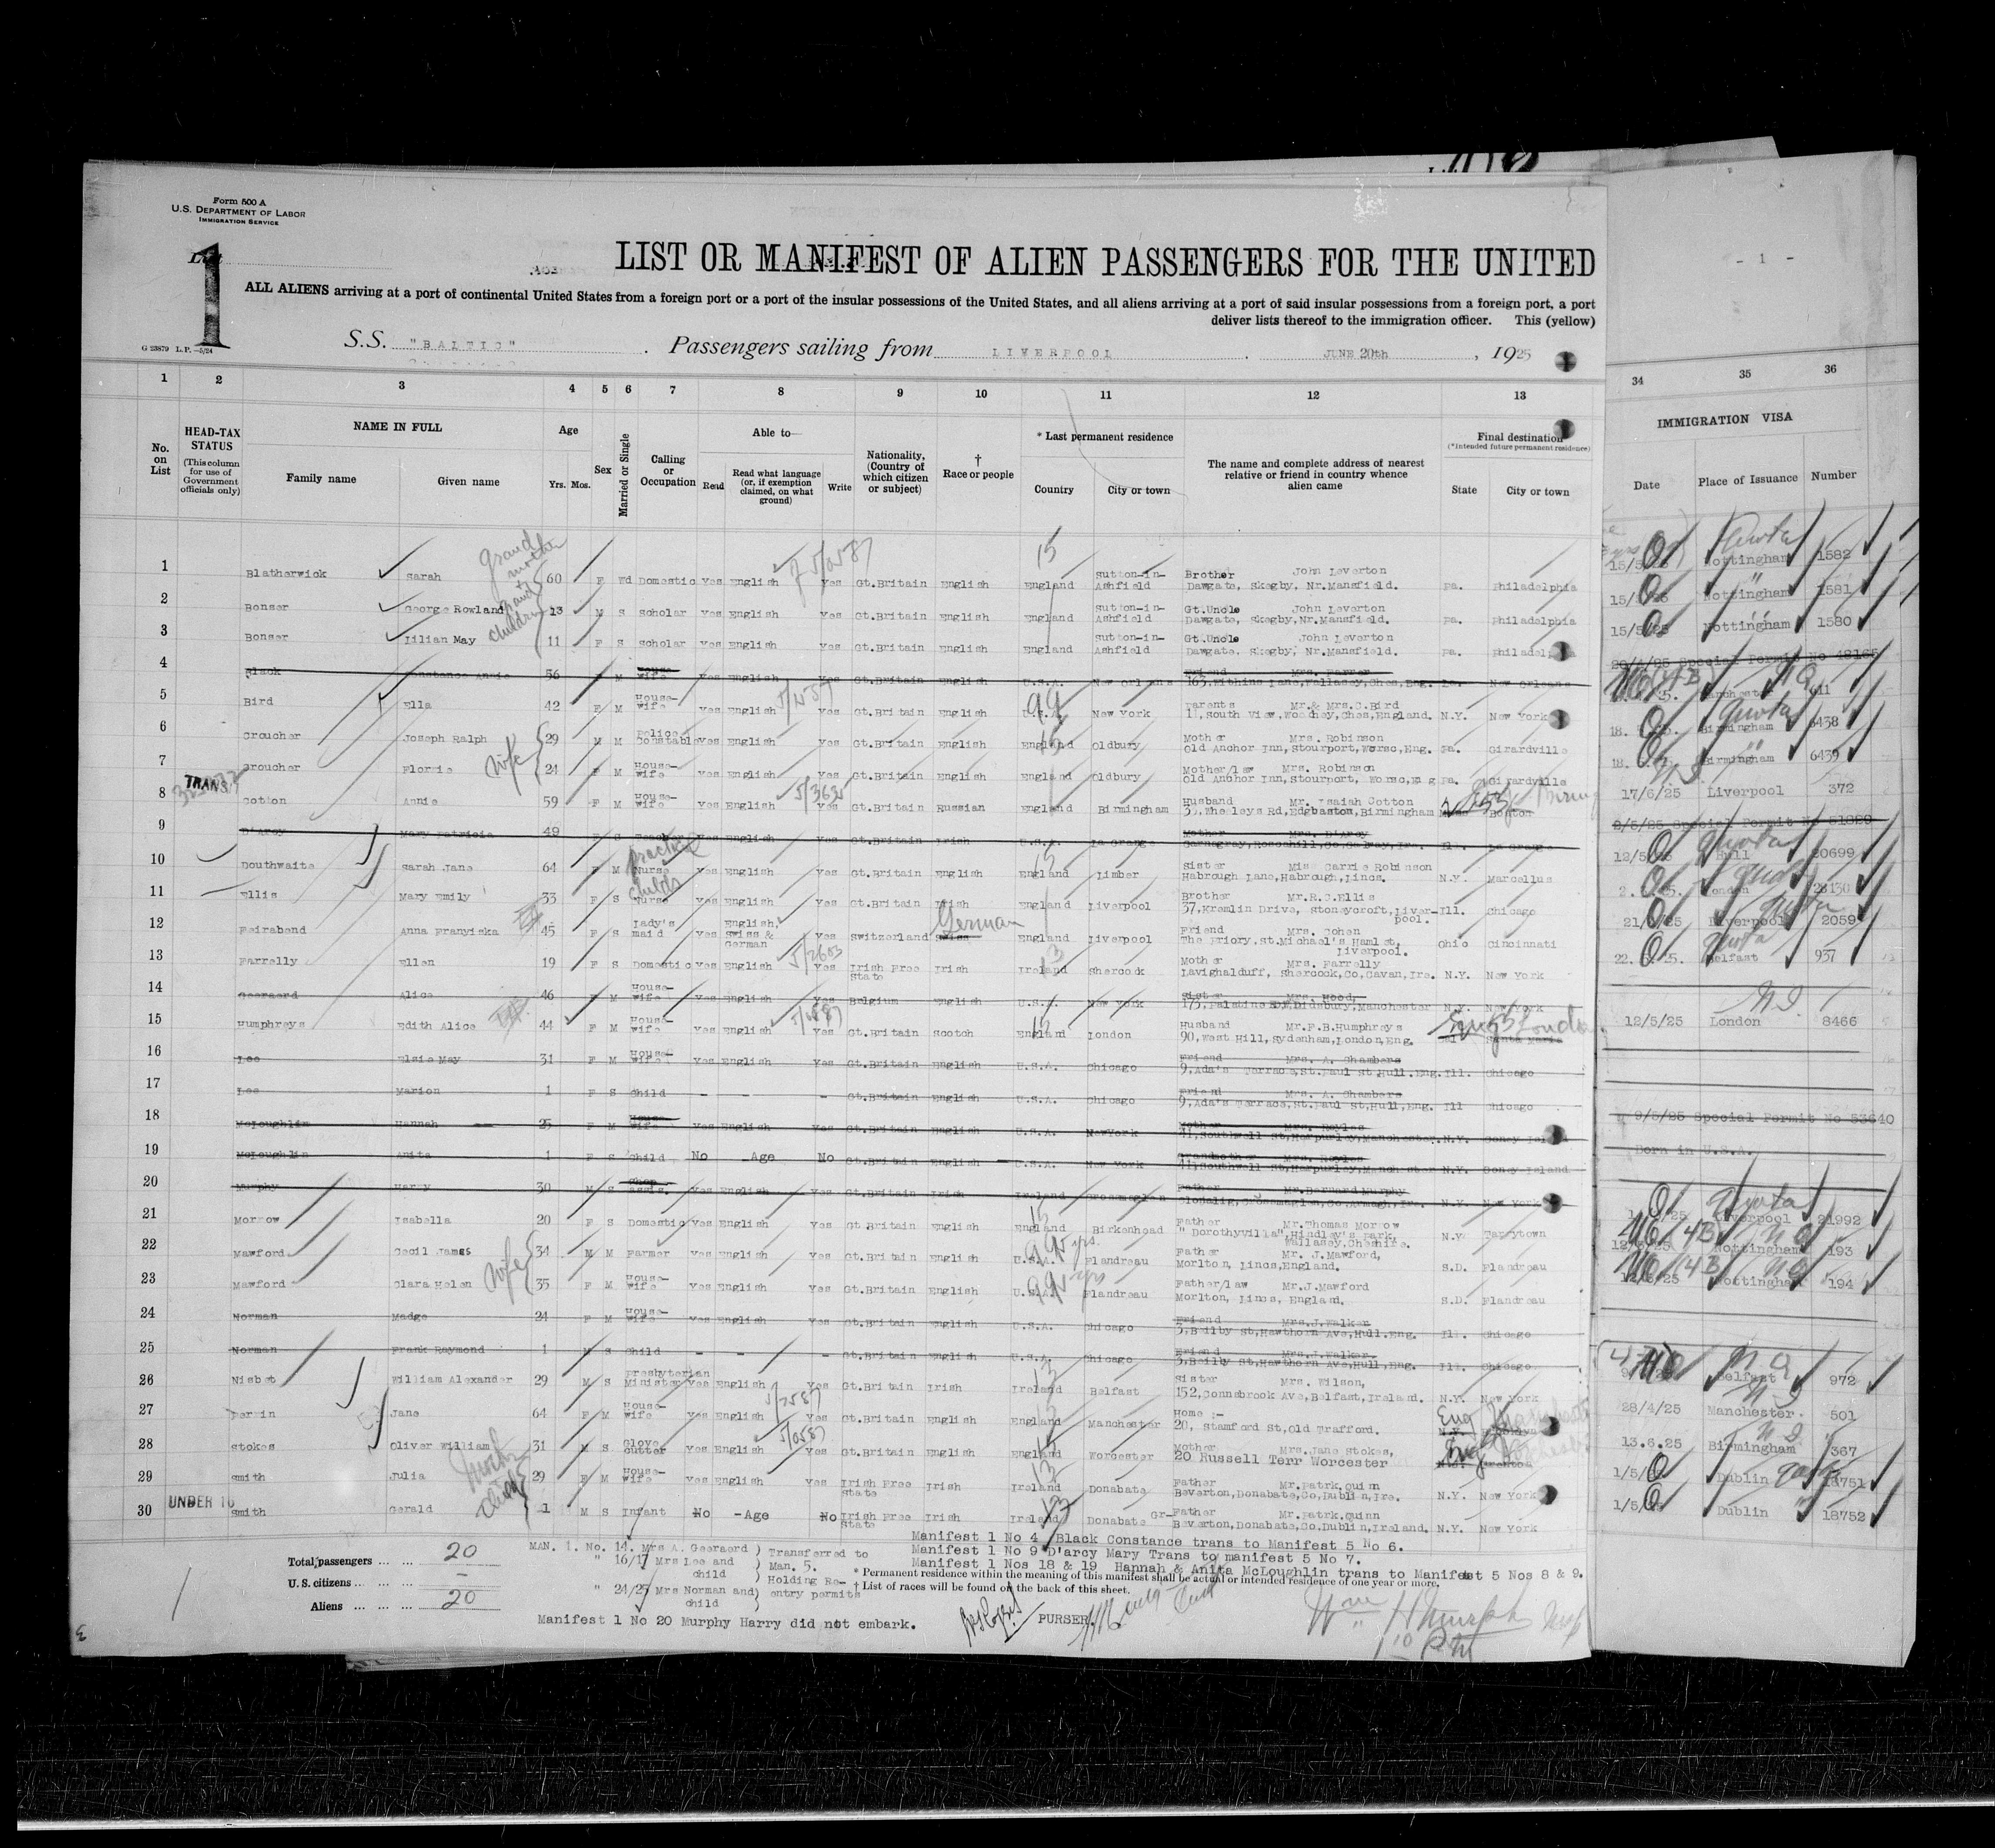 Form 500 A
U.S. DEPARTMENT OF LABOR
IMMIGRATION SERVICE
List 1
LIST OR MANIFEST OF ALIEN PASSENGERS FOR THE UNITED
- 1 -
ALL ALIENS arriving at a port of continental United States from a foreign port or a port of the insular possessions of the United States, and all aliens arriving at a port of said insular possessions from a foreign port, a port
deliver lists thereof to the immigration officer. This (yellow)
G 23879 L.P.—5/24
S.S. "BALTIC". Passengers sailing from LIVERPOOL. JUNE 20th, 1925
1 2 3 4 5 6 7 8 9 10 11 12 13 34 35 36
No. on List
HEAD-TAX STATUS
(This column for use of Government officials only)
NAME IN FULL
Family name Given name
Age
Yrs. Mos.
Sex
Married or Single
Calling or Occupation
Able to—
Read Read what language (or, if exemption claimed, on what ground) Write
Nationality, (Country of which citizen or subject)
† Race or people
* Last permanent residence
Country City or town
The name and complete address of nearest relative or friend in country whence alien came
Final destination
(*Intended future permanent residence)
State City or town
IMMIGRATION VISA
Date Place of Issuance Number
1 Blatherwick Sarah 60 F Wd Domestic Yes English Yes Gt.Britain English England Sutton-in-Ashfield Brother John Leverton Dawgate, Skegby, Nr.Mansfield. Pa. Philadelphia Nottingham 1582
grand mother
2 Bonser George Rowland 13 M S Scholar Yes English Yes Gt.Britain English England Sutton-in-Ashfield Gt.Uncle John Leverton Dawgate, Skegby, Nr.Mansfield. Pa. Philadelphia Nottingham 1581
grand children
3 Bonser Lilian May 11 F S Scholar Yes English Yes Gt.Britain English England Sutton-in-Ashfield Gt.Uncle John Leverton Dawgate, Skegby, Nr.Mansfield. Pa. Nottingham 1580
4 Black Constance Annie 56 F M House-wife Yes English Yes Gt.Britain English U.S.A. New Orleans Friend La. New Orleans Special Permit No 48165
5 Bird Ella 42 F M House-wife Yes English Yes Gt.Britain English U.S.A. New York Parents Mr.& Mrs.C.Bird 11, South View, Woodhey, Ches, England. N.Y. New York Manchester 611
6 Croucher Joseph Ralph 29 M M Police Constable Yes English Yes Gt.Britain English England Oldbury Mother Mrs. Robinson Old Anchor Inn, Stourport, Worsc, Eng. Pa. Girardville Birmingham 6438
wife
7 Croucher Florrie 24 F M House-wife Yes English Yes Gt.Britain English England Oldbury Mother/law Mrs. Robinson Old Anchor Inn, Stourport, Worsc, Eng Pa. Girardville Birmingham 6439
TRANS.
8 Cotton Annie 59 F M House-wife Yes English Yes Gt.Britain Russian England Birmingham Husband Mr. Isaiah Cotton Edgbaston, Birmingham Boston 17/6/25 Liverpool 372
9 D'Arcy Mary Patricia 49 F S Teacher Yes English Yes Gt.Britain Irish U.S.A. La Grange Mother Mrs. D'Arcy Ill. La Grange 2/5/25 Special Permit
10 Douthwaite Sarah Jane 64 F M Nurse Yes English Yes Gt.Britain English England Limber Sister Miss Carrie Robinson Habrough Lane, Habrough, Lincs. N.Y. Marcellus Hull 20699
11 Ellis Mary Emily 33 F S childs Nurse Yes English Yes Gt.Britain Irish England Liverpool Brother Mr.R.C.Ellis 37, Kremlin Drive, Stoneycroft, Liver-pool. Ill. Chicago London
12 Feirabend Anna Franyiska 45 F S Lady's maid Yes English, Swiss & German Yes Switzerland Swiss German England Liverpool Friend Mrs. Cohen The Priory, St.Michael's Hamlet, Liverpool. Ohio Cincinnati Liverpool 2059
13 Farrelly Ellen 19 F S Domestic Yes English Yes Irish Free State Irish Ireland Shercock Mother Mrs. Farrelly Lavighalduff, Shercock, Co, Cavan, Ire. N.Y. New York Belfast 937
14 Geeraerd Alice 46 F M House-wife Yes English Yes Belgium English U.S.A. New York Sister Mrs. Hood, Didsbury, Manchester N.Y. New York
15 Humphreys Edith Alice 44 F M House-wife Yes English Yes Gt.Britain Scotch England London Husband Mr.F.B.Humphreys 90, West Hill, Sydenham, London, Eng. Santa Maria London 12/5/25 London 8466
16 Lee Elsie May 31 F M House-wife Yes English Yes Gt.Britain English U.S.A. Chicago Friend Mrs. A. Chambers 9, Ada's Terrace, St.Paul St, Hull, Eng. Ill. Chicago
17 Lee Marion 1 F S Child - - - Gt.Britain English U.S.A. Chicago Friend Mrs. A. Chambers 9, Ada's Terrace, St.Paul St, Hull, Eng. Ill Chicago
18 McLoughlin Hannah 25 F M House-wife Yes English Yes Gt.Britain English U.S.A. NewYork Mother Mrs. Royles 41, Southwell St, Harpurley, Manchester. N.Y. Coney Island 9/5/25 Special Permit No 53640
19 McLoughlin Anita 1 F S Child No Age No Gt.Britain English U.S.A. New York Grandmother Mrs. Royles 41, Southwell St, Harpurley, Manchester N.Y. Coney Island Born in U.S.A.
20 Murphy Harry 30 M S Shop assis. Yes English Yes Gt.Britain Irish Ireland Father Mr.Bernard Murphy N.Y. New York
21 Morrow Isabella 20 F S Domestic Yes English Yes Gt Britain English England Birkenhead Father Mr.Thomas Morrow "Dorothyvilla", Hindley's park, Wallasey, Cheshire. N.Y. Tarrytown Liverpool 21992
22 Mawford Cecil James 34 M M Farmer Yes English Yes Gt.Britain English U.S.A. Flandreau Father Mr. J.Mawford, Morlton, Lincs, England. S.D. Flandreau Nottingham 193
wife
23 Mawford Clara Helen 35 F M House-wife Yes English Yes Gt.Britain English U.S.A. Flandreau Father/law Mr.J.Mawford Morlton, Lincs, England. S.D. Flandreau Nottingham 194
24 Norman Madge 24 F M House-wife Yes English Yes Gt.Britain English U.S.A. Chicago Friend Mrs.J.Walker 3, Beilby St, Hawthorn Ave, Hull, Eng. Ill. Chicago
25 Norman Frank Raymond 1 M S Child - - - Gt.Britain English U.S.A. Chicago Friend Mrs.J.Walker. 3, Beilby St, Hawthorn Ave, Hull, Eng. Ill. Chicago
26 Nisbet William Alexander 29 M S Presbyterian Minister Yes English Yes Gt.Britain Irish Ireland Belfast Sister Mrs. Wilson, 152, Connsbrook Ave, Belfast, Ireland. N.Y. New York Belfast 972
27 Perrin Jane 64 F M House-wife Yes English Yes Gt.Britain English England Manchester Home :- 20, Stamford St, Old Trafford. Eng 28/4/25 Manchester. 501
28 Stokes Oliver William 31 M S Glove cutter Yes English Yes Gt.Britain English England Worcester Mother Mrs.Jane Stokes, 20 Russell Terr Worcester Eng 13.6.25 Birmingham 367
29 Smith Julia 29 F M House-wife Yes English Yes Irish Free State Irish Ireland Donabate Father Mr.Patrk.Quinn Beverton, Donabate, Co, Dublin, Ire. N.Y. New York Dublin 18751
UNDER 16
30 Smith Gerald 1 M S Infant No -Age No Irish Free State Irish Ireland Donabate Gr-Father Mr.Patrk.Quinn Beverton, Donabate, Co, Dublin, Ireland. N.Y. New York Dublin 18752
Total passengers ... ... 20
U. S. citizens ... ... —
Aliens ... ... ... 20
MAN. 1. No. 14. Mrs A. Geeraerd ) Transferred to
" 16/17 Mrs Lee and child ) Man. 5.
" 24/25 Mrs Norman and child ) Holding Re-entry permits
Manifest 1 No 20 Murphy Harry did not embark.
Manifest 1 No 4 Black Constance trans to Manifest 5 No 6.
Manifest 1 No 9 D'arcy Mary Trans to manifest 5 No 7.
Manifest 1 Nos 18 & 19 Hannah & Anita McLoughlin trans to Manifest 5 Nos 8 & 9.
* Permanent residence within the meaning of this manifest shall be actual or intended residence of one year or more.
† List of races will be found on the back of this sheet.
PURSER.